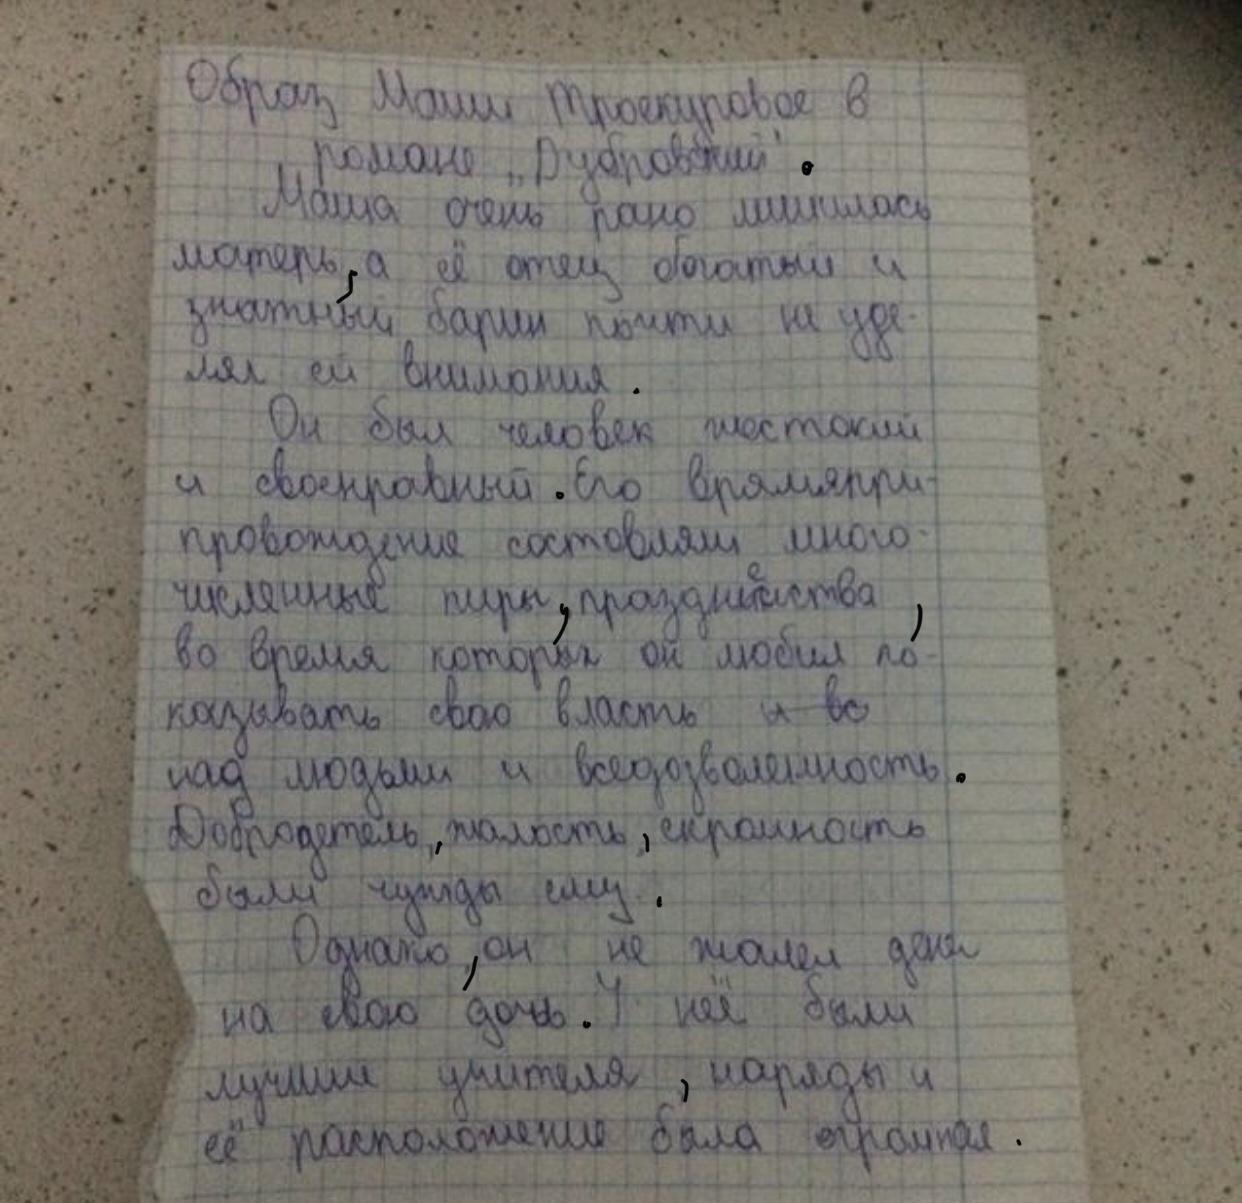 Образ Маши Троекуровое в
романе „Дубровский".
Маша очень рано лишилась
матерь, а её отец богатый и
знатный барин почти не уде-
лял ей внимания.
Он был человек жестокий
и своенравный. Его врямяпри-
провождение составляли много-
численные пиры, празднества,
во время которых он любил по-
казывать свою власть и во
над людьми и вседозволенность.
Добродетель, жалость, скромность
были чужды ему.
Однако, он не жалел денег
на свою дочь. У неё были
лучшие учителя, наряды и
её расположение была огромная.